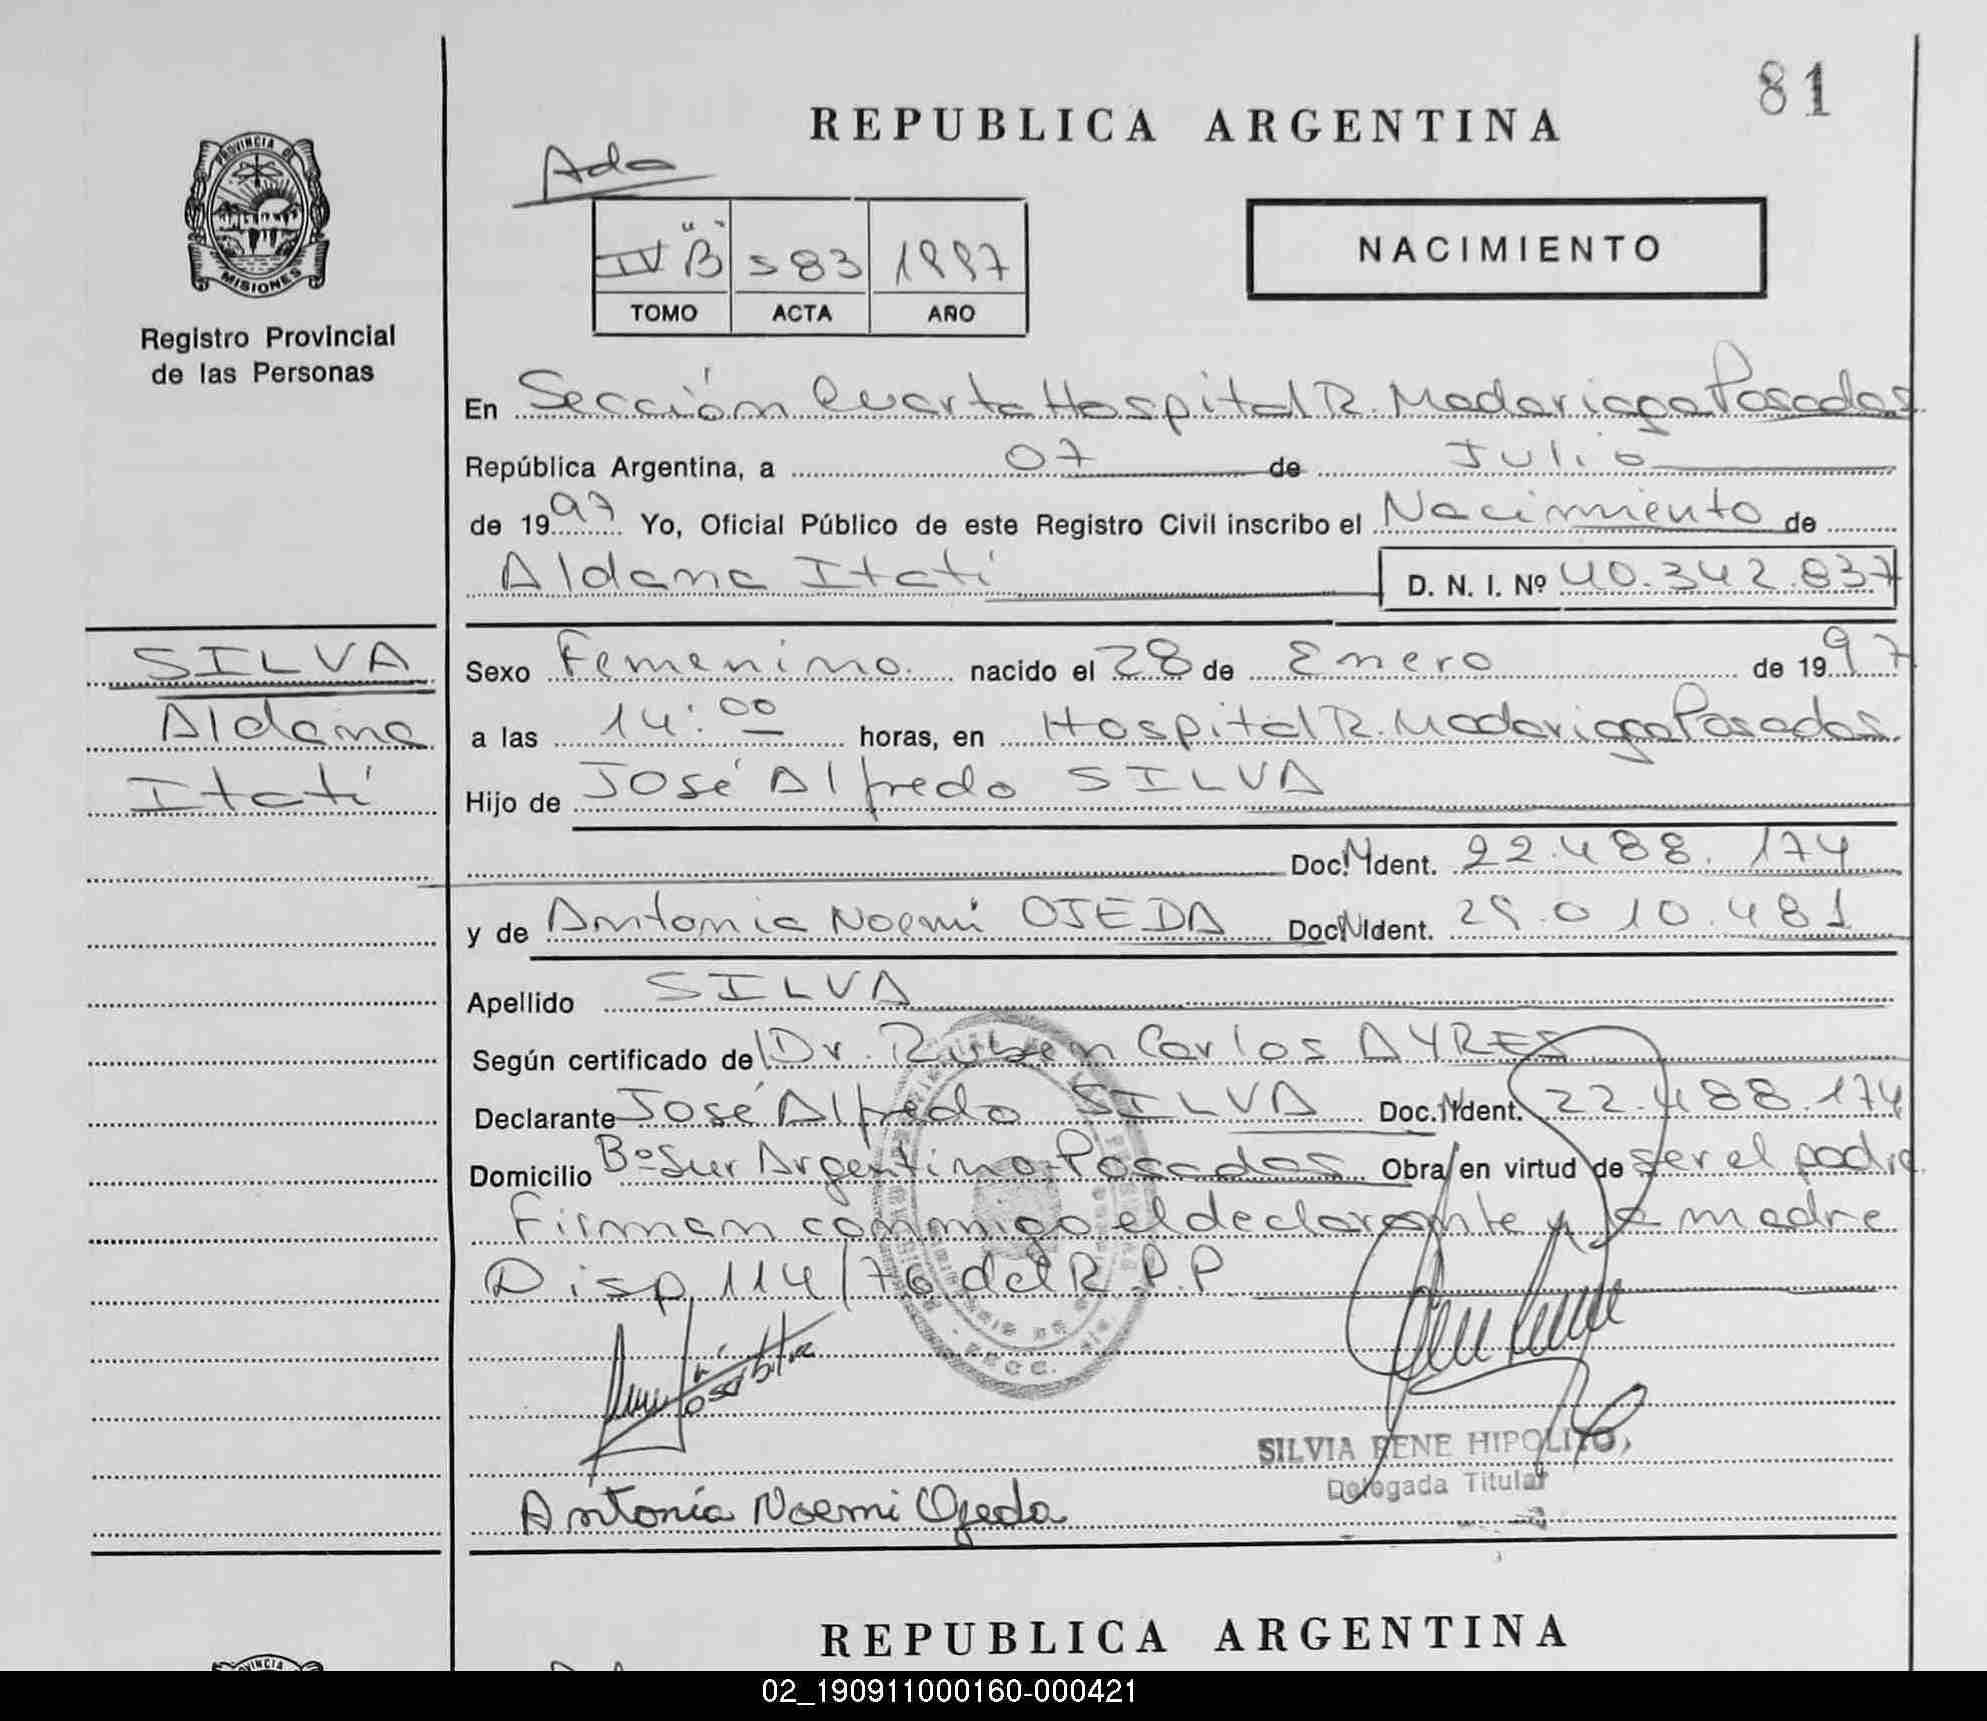 81
REPUBLICA ARGENTINA
Ada
PROVINCIA DE
MISIONES
IV "B" 583 1997
TOMO ACTA AÑO
NACIMIENTO
Registro Provincial
de las Personas
En Sección Cuarta Hospital R. Madariaga Posadas
República Argentina, a 07 de Julio
de 1997 Yo, Oficial Público de este Registro Civil inscribo el Nacimiento de
Aldana Itatí D. N. I. Nº 40.342.837
SILVA
Aldana
Itatí
Sexo Femenino. nacido el 28 de Enero de 1997
a las 14:00 horas, en Hospital R. Madariaga Posadas.
Hijo de José Alfredo SILVA
Doc. Ident. 22.488.174
y de Antonia Noemi OJEDA Doc. Ident. 29.010.481
Apellido SILVA
Según certificado de Dr. Ruben Carlos AYRES
Declarante José Alfredo SILVA Doc. Ident. 22.488.174
Domicilio Bº Sur Argentino-Posadas Obra en virtud de ser el padre
Firman conmigo el declarante y la madre
Disp. 114/76 del R.P.P
SILVIA RENE HIPOLITO,
Delegada Titular
Antonia Noemi Ojeda
REPUBLICA ARGENTINA
02_190911000160-000421